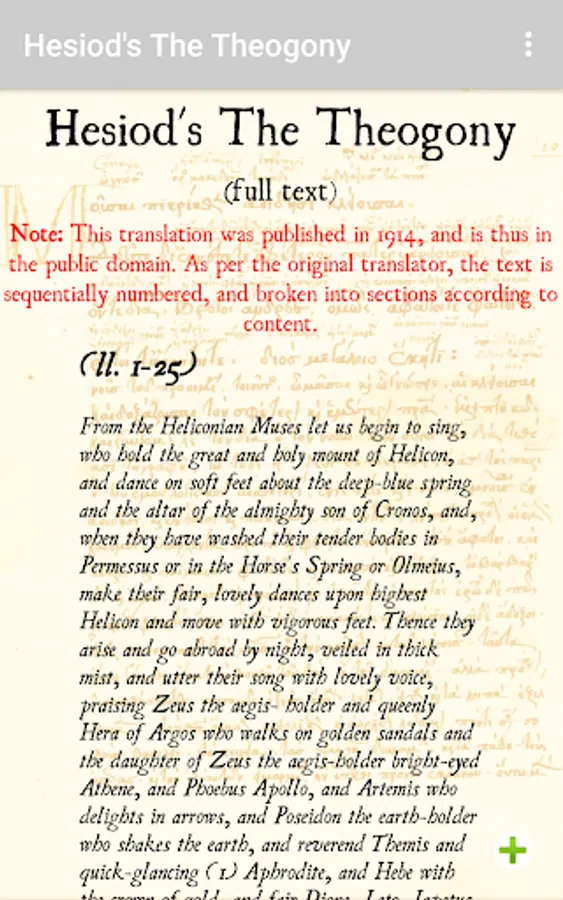 Hesiod's The Theogony
Hesiod's The Theogony
(full text)
Note: This translation was published in 1914, and is thus in
the public domain. As per the original translator, the text is
sequentially numbered, and broken into sections according to
content.
(ll. 1-25)
From the Heliconian Muses let us begin to sing,
who hold the great and holy mount of Helicon,
and dance on soft feet about the deep-blue spring
and the altar of the almighty son of Cronos, and,
when they have washed their tender bodies in
Permessus or in the Horse's Spring or Olmeius,
make their fair, lovely dances upon highest
Helicon and move with vigorous feet. Thence they
arise and go abroad by night, veiled in thick
mist, and utter their song with lovely voice,
praising Zeus the aegis- holder and queenly
Hera of Argos who walks on golden sandals and
the daughter of Zeus the aegis-holder bright-eyed
Athene, and Phoebus Apollo, and Artemis who
delights in arrows, and Poseidon the earth-holder
who shakes the earth, and reverend Themis and
quick-glancing (1) Aphrodite, and Hebe with
the crown of gold, and fair Dione, Leto, Iapetus,